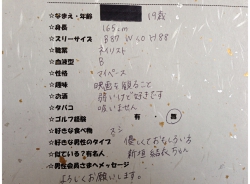 ☆なまえ・年齢 19歳
☆身長 165cm
☆スリーサイズ B87 W60 H88
☆職業 ネイリスト
☆血液型 B
☆性格 マイペース
☆趣味 映画を観ること
☆お酒 弱いけど好きです
☆タバコ 吸いません
☆ゴルフ経験 有 無
☆好きな食べ物 すし
☆好きな男性のタイプ 優しくておもしろい方
☆似ている?有名人 新垣結衣ちゃん
☆男性会員さまへメッセージ
よろしくお願いします。